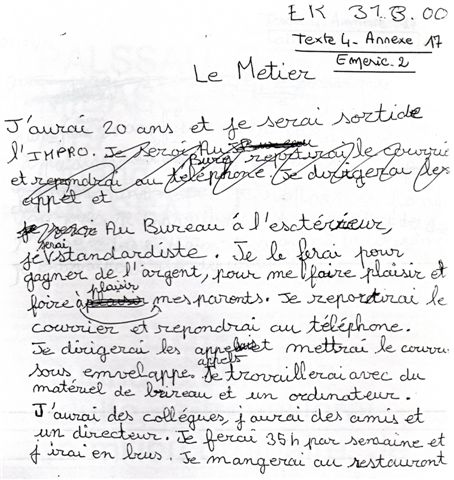 EK 31.B.00
Texte 4. Annexe 17
Emeric.2
Le Metier
J'aurai 20 ans et je serai sortide
l'IMPRO. Je serai Au Bureau
Buro reportirai le courrie
et repondrai au téléphone. Je dirigerai les
appel et
je serai Au Bureau á l'esctérieur,
serai
je standardiste. Je le ferai pour
gagner de l'argent, pour me faire plaisir et
plaisir
faire à mes parents. Je reportirai le
courrier et repondrai au téléphone.
Je dirigerai les et mettrai le courri
appels
sous envelappe. Je travaillerai avec du
matériel de bureau et un ordinateur.
J'aurai des collégues, j aurai des amis et
un directeur. Je ferai 35h par semaine et
j irai en brus. Je mangerai au restaurant